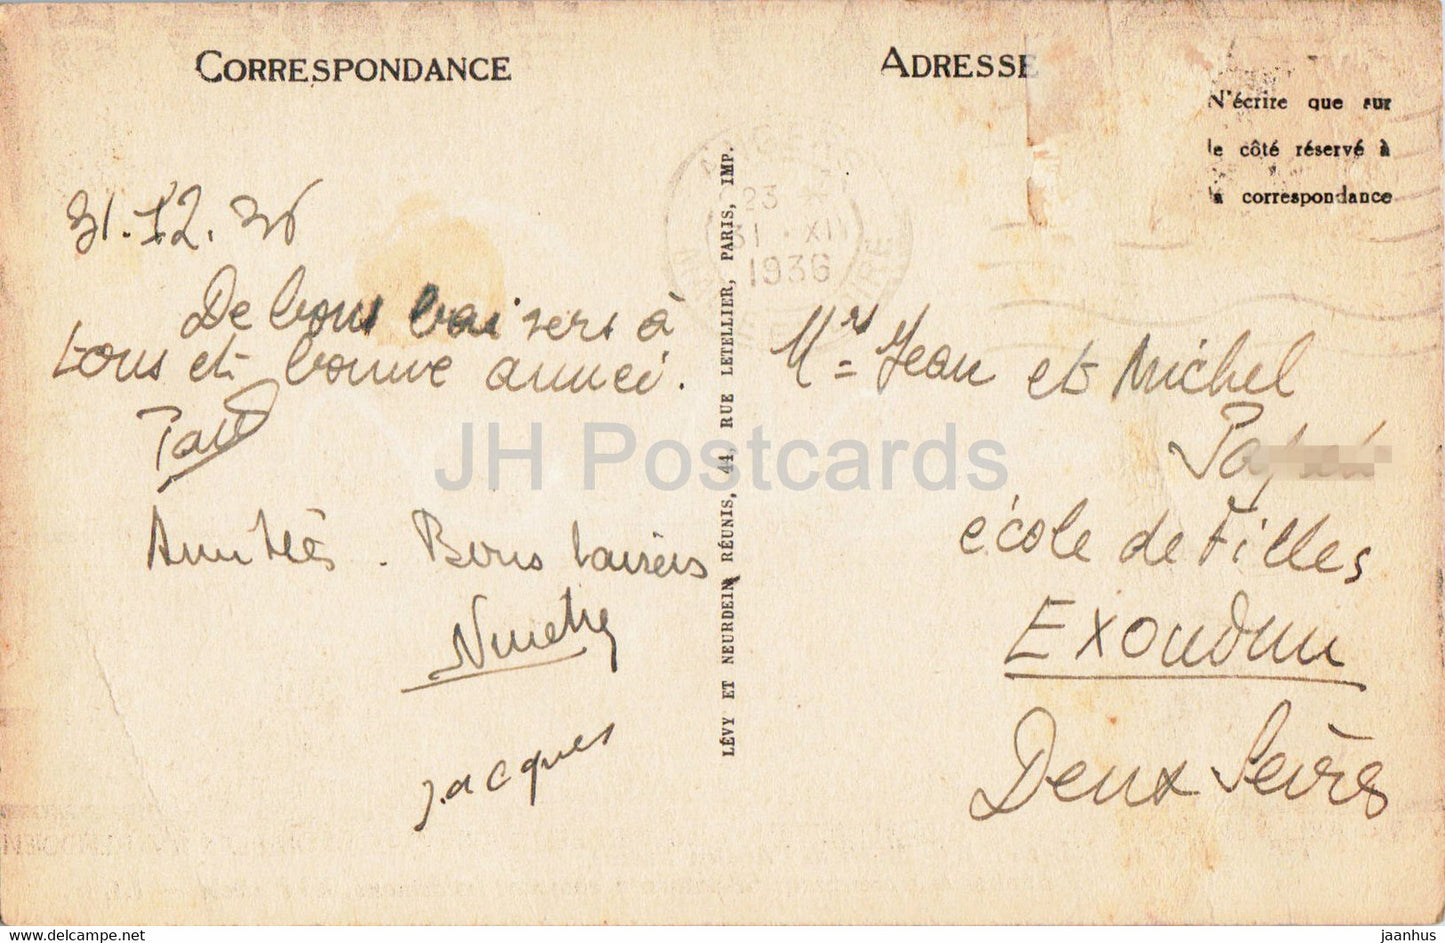 CORRESPONDANCE
31.12.36
De bons baisers à
tous et bonne année.
Paul
Amitiés. Bons baisers
Jacques
LÉVY ET NEURDEIN RÉUNIS, 44, RUE LETELLIER, PARIS, IMP.
ADRESSE
N'écrire que sur
le côté réservé à
la correspondance
ANGERS
23
31 XII
1936
Mrs Jean et Michel
école de Filles
EXOUDUN
Deux Sèvres
JH Postcards
www.delcampe.net
jaanhus